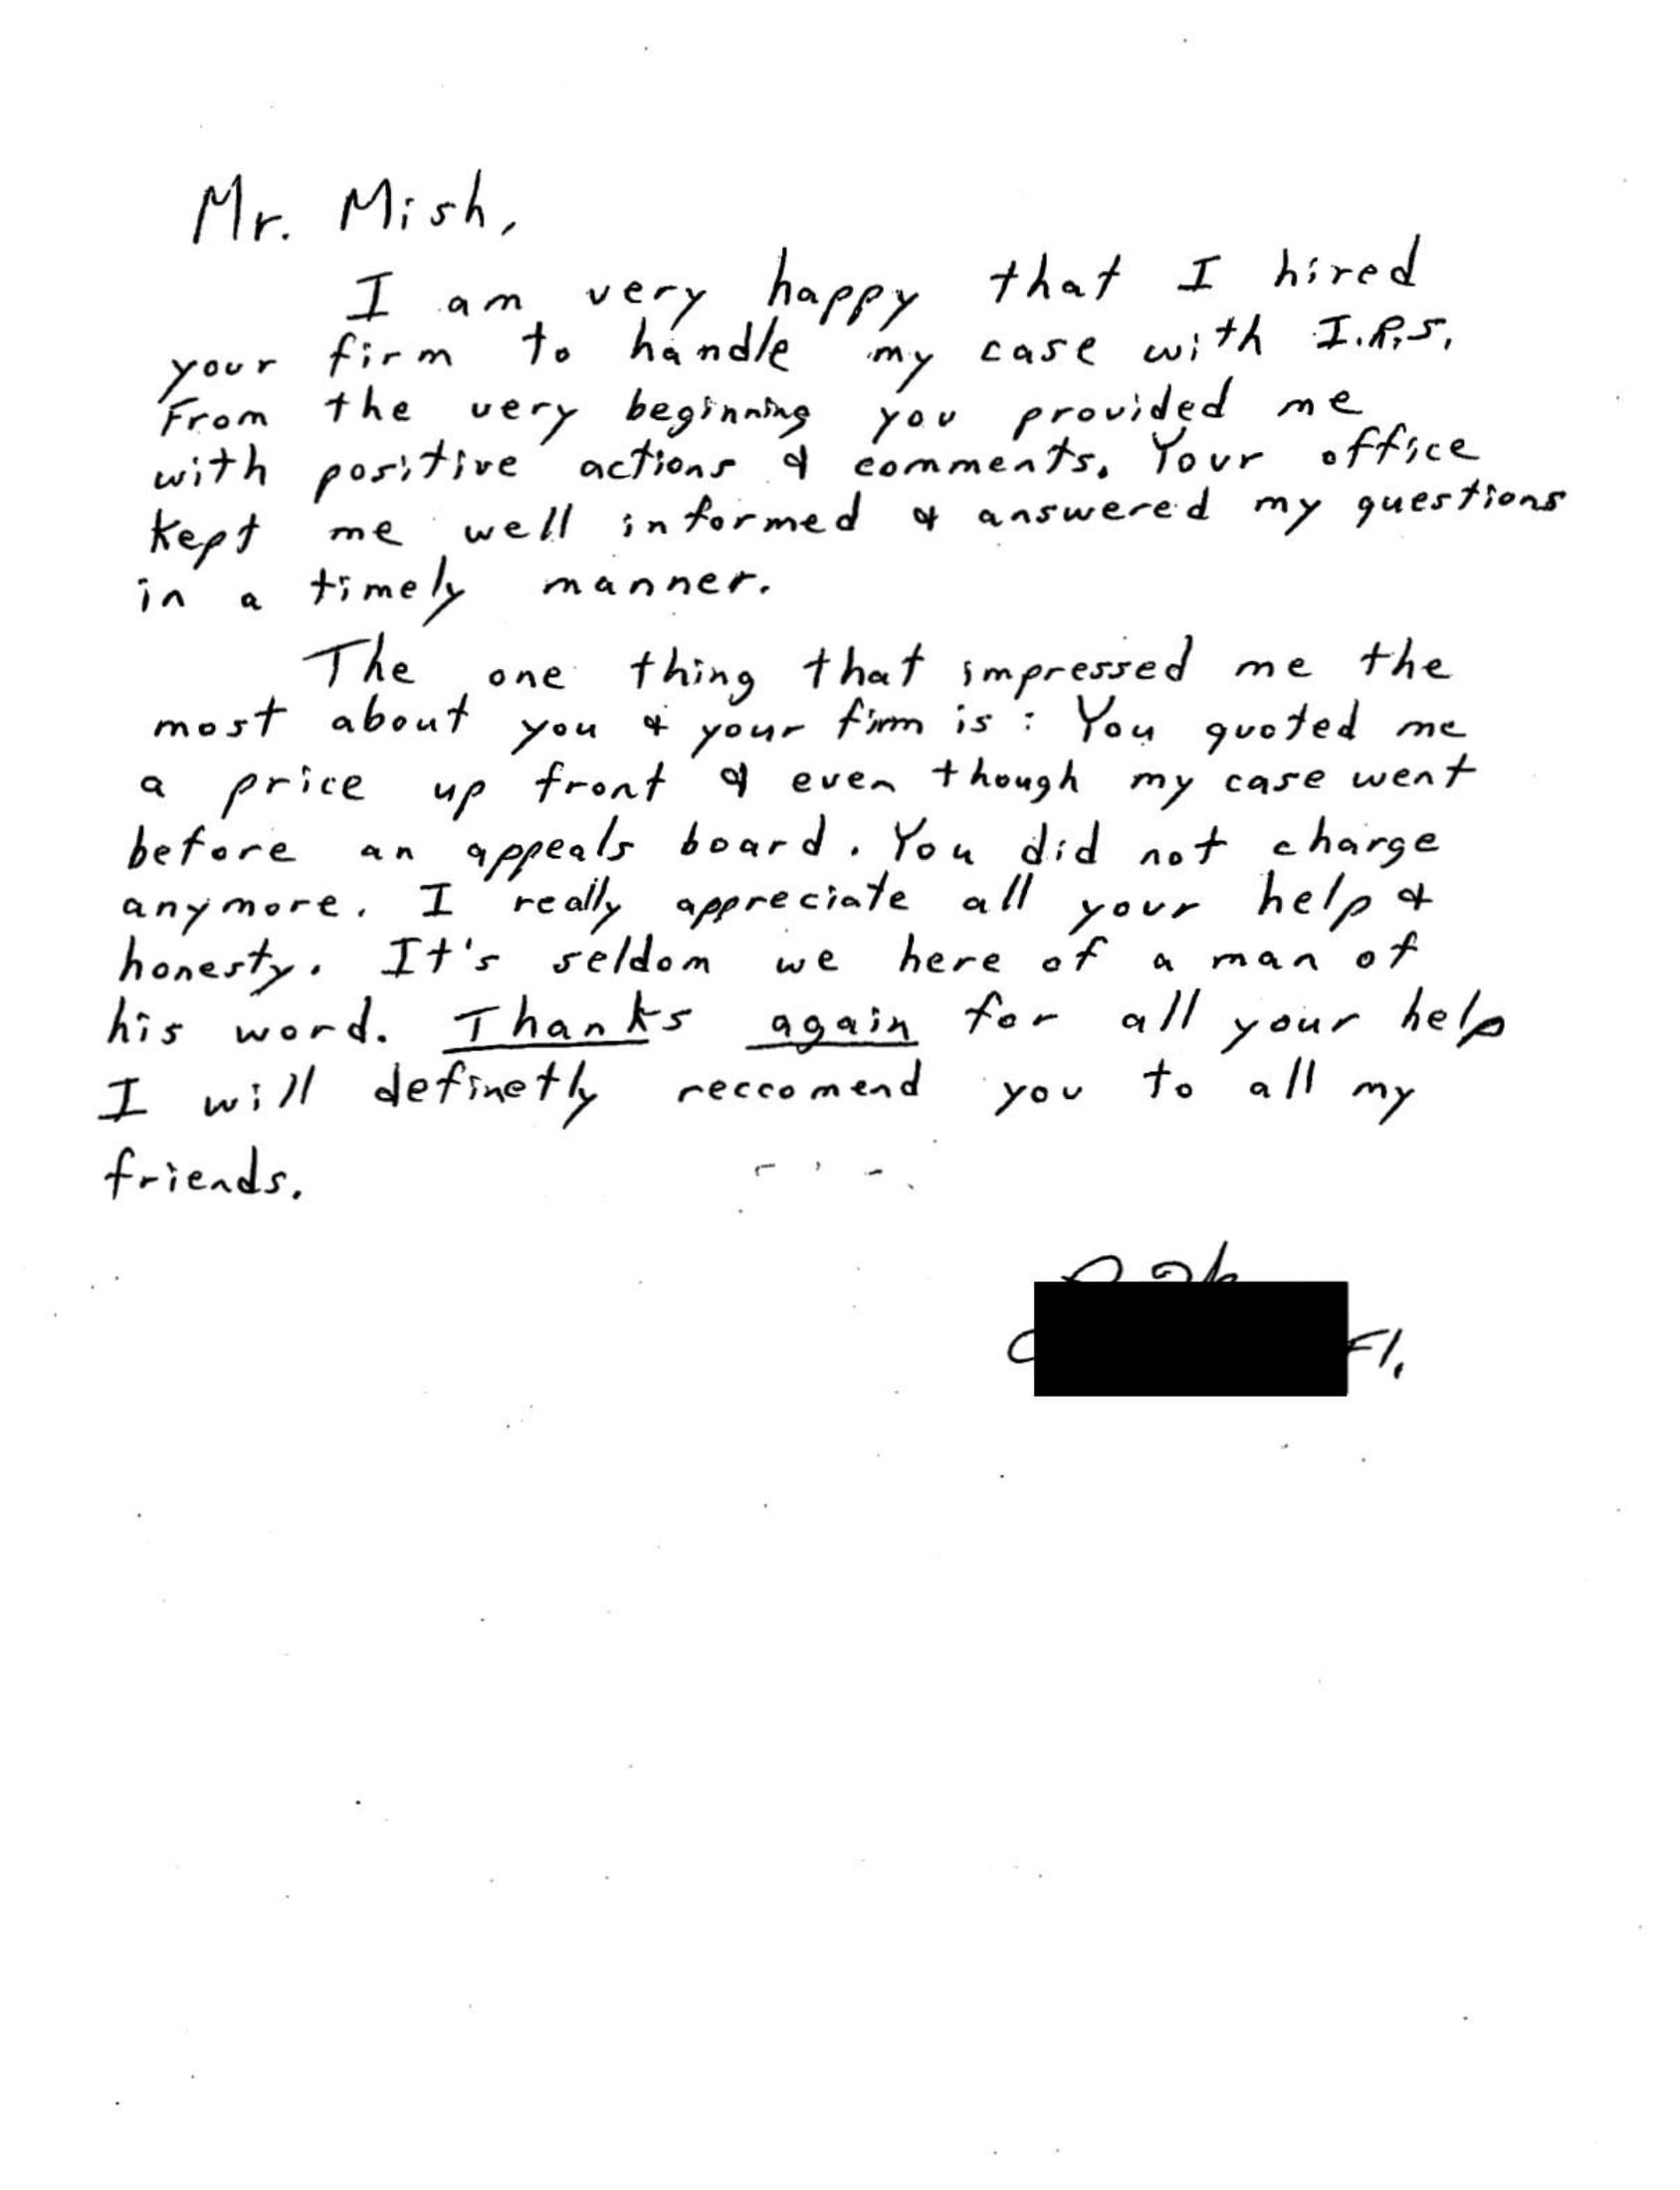 Mr. Mish,
I am very happy that I hired
your firm to handle my case with I.R.S.
From the very beginning you provided me
with positive actions & comments. Your office
kept me well informed & answered my questions
in a timely manner.
The one thing that impressed me the
most about you & your firm is : You quoted me
a price up front & even though my case went
before an appeals board. You did not charge
anymore. I really appreciate all your help &
honesty. It's seldom we here of a man of
his word. Thanks again for all your help
I will definetly reccomend you to all my
friends.
Fl.